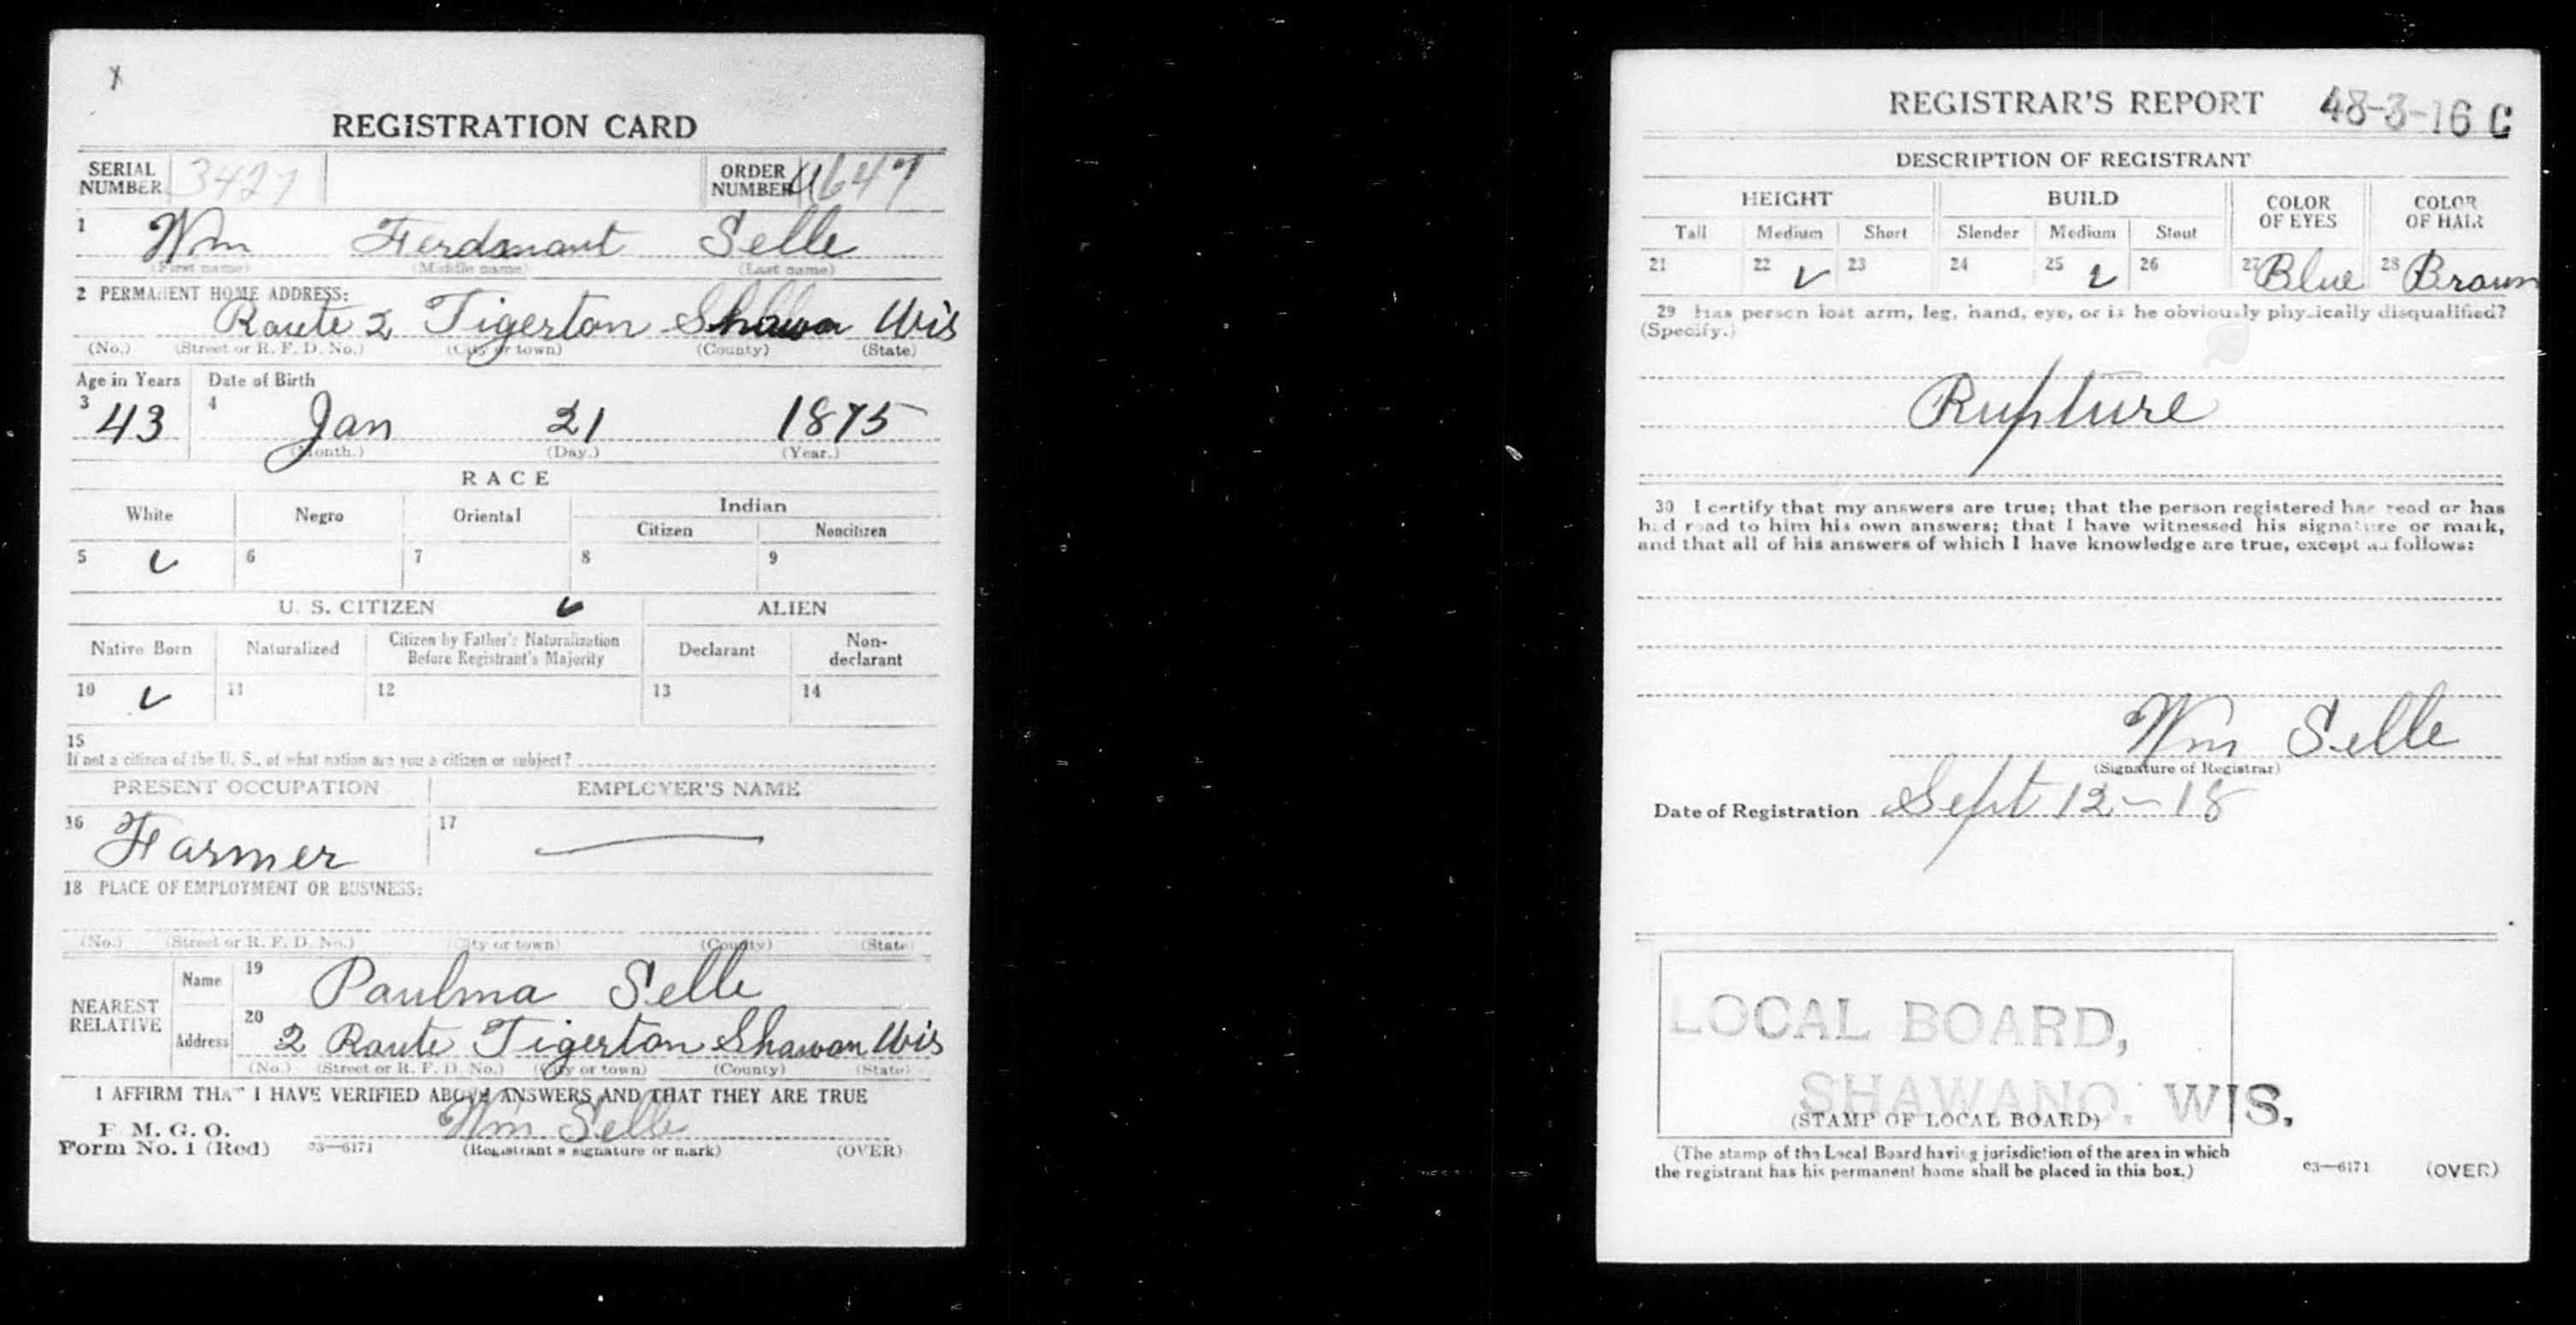 REGISTRATION CARD
SERIAL NUMBER 3427 ORDER NUMBER
1 Wm Ferdanant Selle
(First name) (Middle name) (Last name)
2 PERMANENT HOME ADDRESS:
Route 2 Tigerton Shawan Wis
(No.) (Street or R. F. D. No.) (City or town) (County) (State)
Age in Years Date of Birth
3 43 4 Jan 21 1875
(Month.) (Day.) (Year.)
RACE
White Negro Oriental Indian
Citizen Noncitizen
5 ✓ 6 7 8 9
U. S. CITIZEN ✓ ALIEN
Native Born Naturalized Citizen by Father's Naturalization Before Registrant's Majority Declarant Non-declarant
10 ✓ 11 12 13 14
15
If not a citizen of the U. S., of what nation are you a citizen or subject?
PRESENT OCCUPATION EMPLOYER'S NAME
16 Farmer 17 —
18 PLACE OF EMPLOYMENT OR BUSINESS:
(No.) (Street or R. F. D. No.) (City or town) (County) (State)
NEAREST RELATIVE
Name 19 Paulma Selle
Address 20 2 Route Tigerton Shawan Wis
(No.) (Street or R. F. D. No.) (City or town) (County) (State)
I AFFIRM THAT I HAVE VERIFIED ABOVE ANSWERS AND THAT THEY ARE TRUE
P. M. G. O.
Form No. 1 (Red) 03—6171 Wm Selle
(Registrant's signature or mark) (OVER)
REGISTRAR'S REPORT 48-3-16 C
DESCRIPTION OF REGISTRANT
HEIGHT BUILD COLOR OF EYES COLOR OF HAIR
Tall Medium Short Slender Medium Stout
21 22 ✓ 23 24 25 ✓ 26 27 Blue 28 Brown
29 Has person lost arm, leg, hand, eye, or is he obviously physically disqualified?
(Specify.)
Rupture
30 I certify that my answers are true; that the person registered has read or has
had read to him his own answers; that I have witnessed his signature or mark,
and that all of his answers of which I have knowledge are true, except as follows:
Wm Selle
(Signature of Registrar)
Date of Registration Sept 12-18
LOCAL BOARD,
SHAWANO, WIS.
(STAMP OF LOCAL BOARD)
(The stamp of the Local Board having jurisdiction of the area in which
the registrant has his permanent home shall be placed in this box.)
03—6171 (OVER)